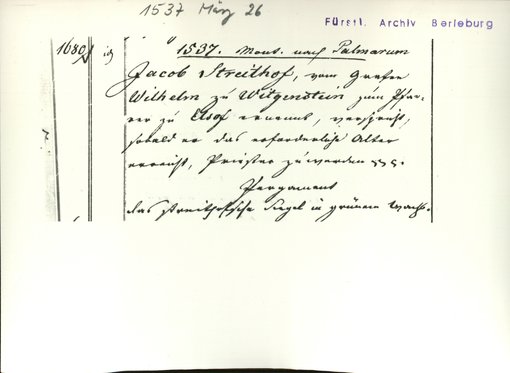 1537 März 26
Fürstl. Archiv Berleburg
1680
1537. Mont. nach Palmarum
Jacob Streithof, vom Grafen
Wilhelm zu Witgenstein zum Pfar-
rer zu Elsof ernannt, verspricht,
sobald er das erforderliche Alter
erreicht, Priester zu werden
Pergament
das Streithofsche Siegel in grünem Wachs.